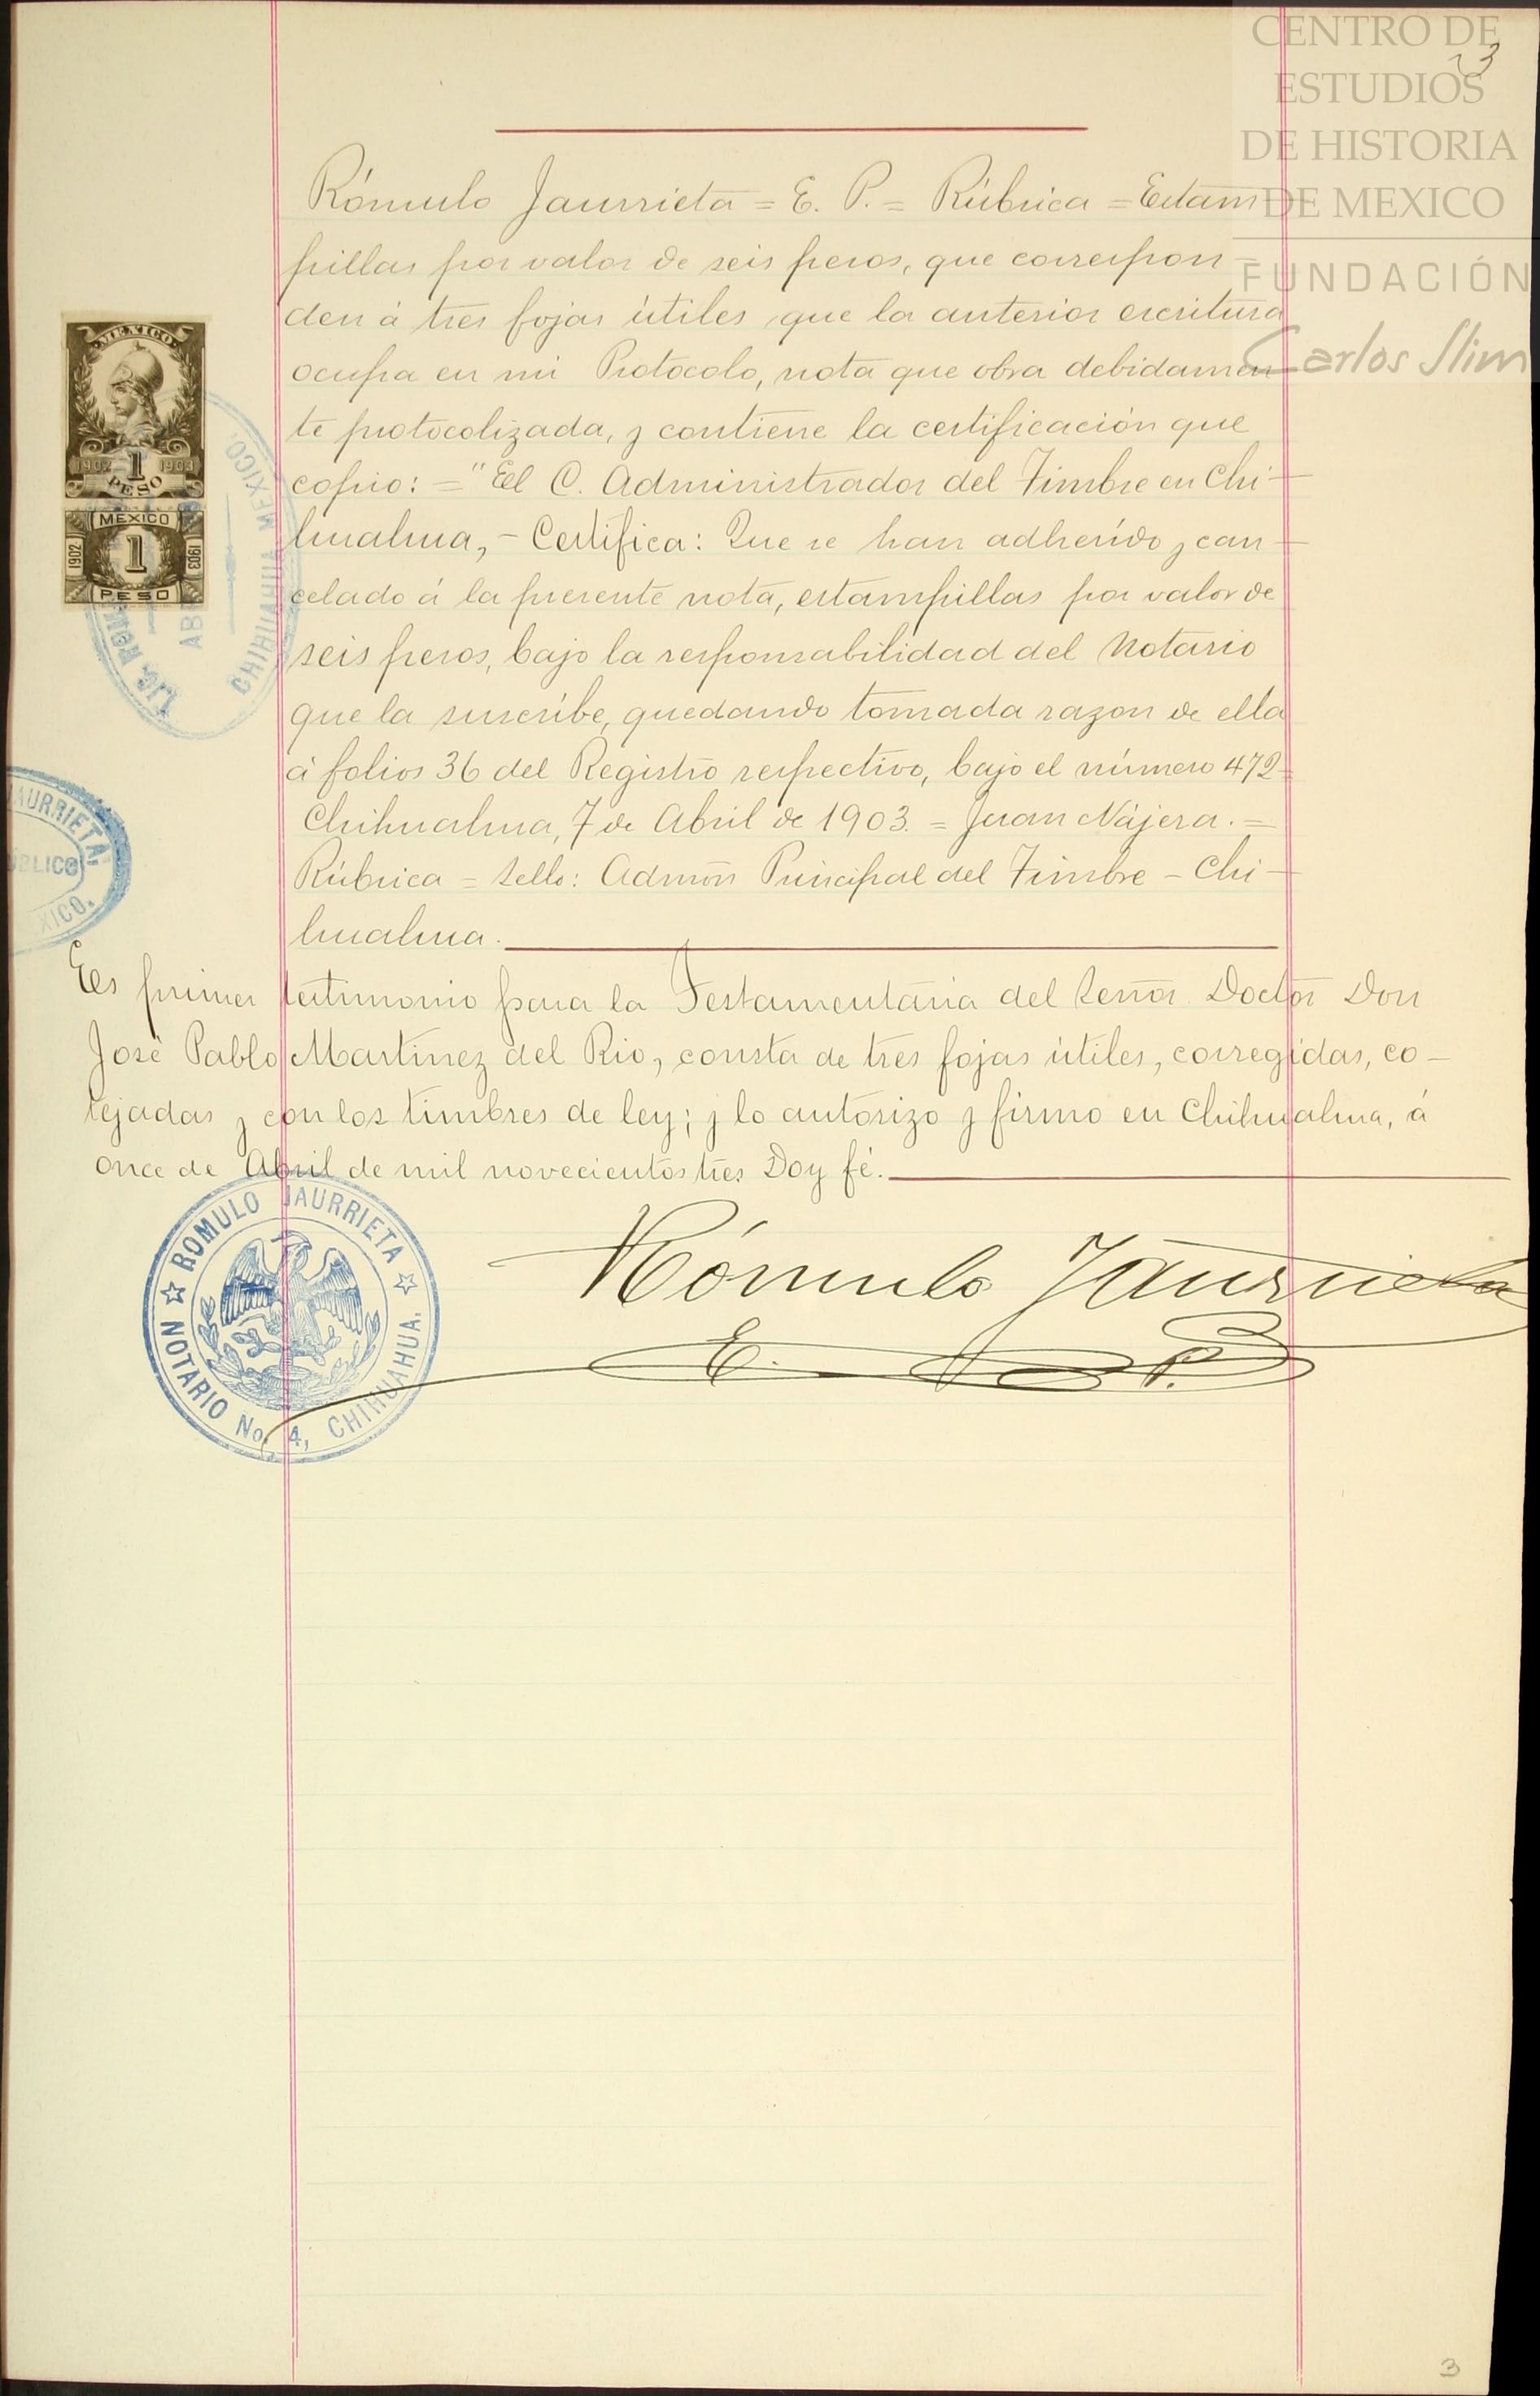 CENTRO DE
ESTUDIOS
DE HISTORIA
DE MEXICO
FUNDACIÓN
Carlos Slim
3
Rómulo Jaurrieta = E. P. = Rúbrica = Estam
pillas por valor de seis pesos, que correspon-
den á tres fojas útiles que la anterior escritura
ocupa en mi Protocolo, nota que obra debidamen
te protocolizada, y contiene la certificación que
copio: = "El C. Administrador del Timbre en Chi-
huahua, - Certifica: Que se han adherido y can-
celado á la presente nota, estampillas por valor de
seis pesos, bajo la responsabilidad del Notario
que la suscribe, quedando tomada razon de ella
á folios 36 del Registro respectivo, bajo el número 472-
Chihuahua, 7 de Abril de 1903. = Juan Nájera. =
Rúbrica = Sello: Admón Principal del Timbre - Chi-
huahua.
Es primer testimonio para la Testamentaria del Señor Doctor Don
José Pablo Martinez del Rio, consta de tres fojas útiles, corregidas, co-
tejadas y con los timbres de ley; y lo autorizo y firmo en Chihuahua, á
once de Abril de mil novecientos tres Doy fé.
Rómulo Jaurrieta
E. P.
MEXICO
1902 1 1903
PESO
MEXICO
1902 1 1903
PESO
LIC. ROM
AB
CHIHUAHUA MEXICO.
AURRIETA,
BLICO
XICO.
ROMULO JAURRIETA
NOTARIO No. 4, CHIHUAHUA.
3